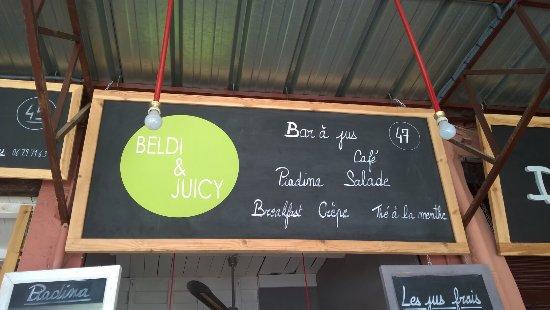 BELDI
&
JUICY
Bar à jus
47
Café
Piadina Salade
Breakfast Crêpe Thé à la menthe
Piadina
Les jus frais